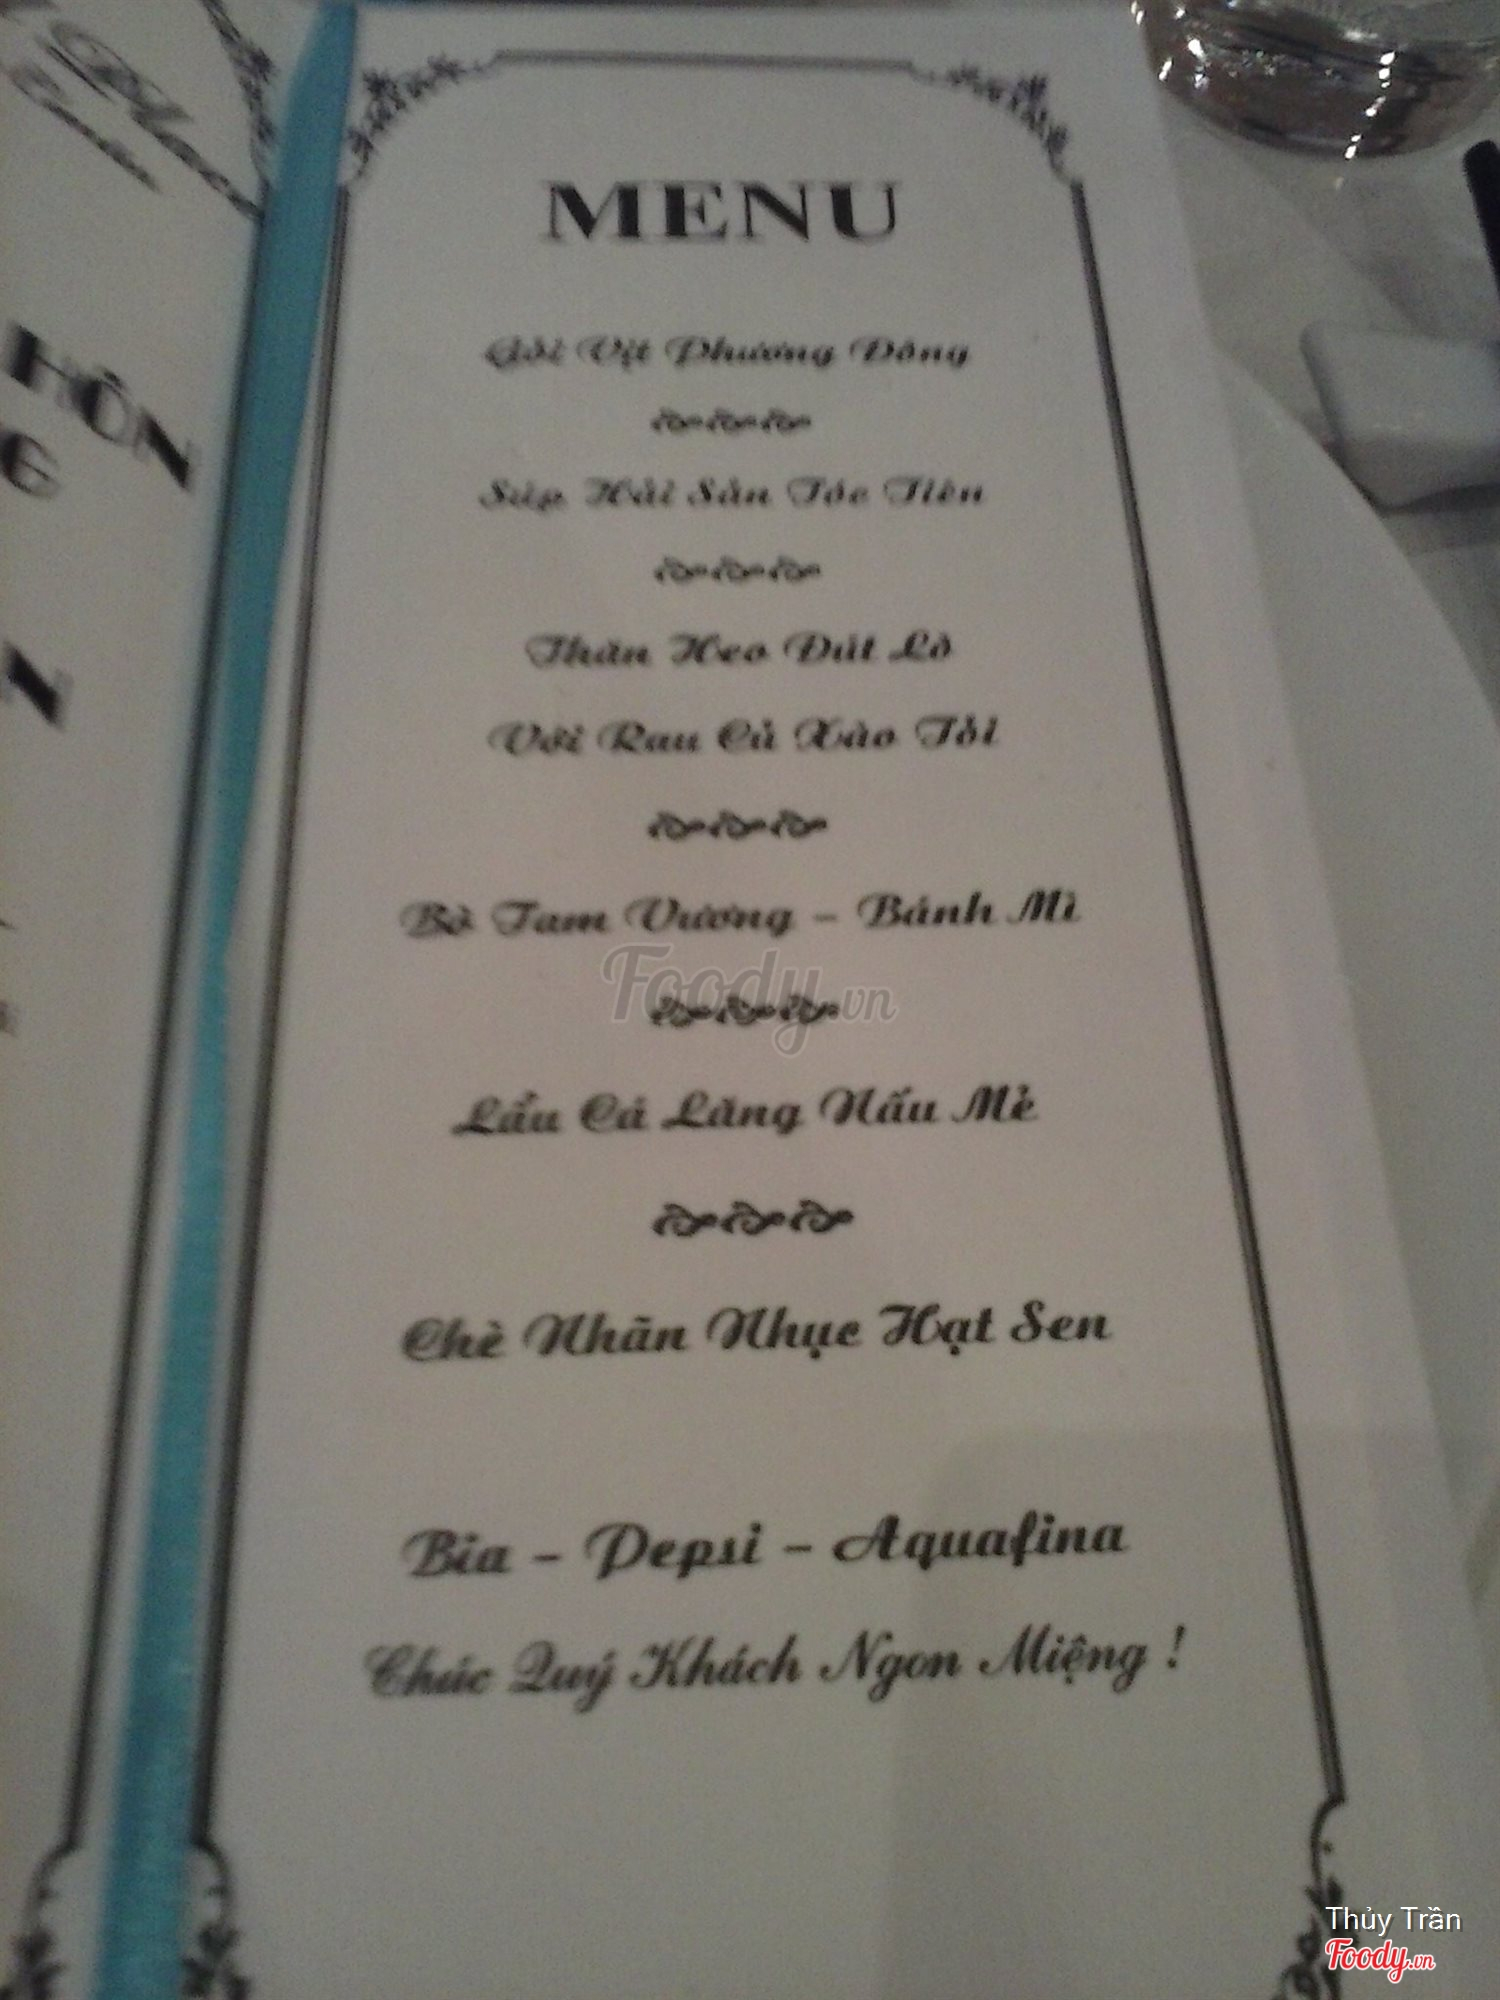 HÔN
MENU
Gỏi Vịt Phương Đông
Súp Hải Sản Tóc Tiên
Thăn Heo Đút Lò
Với Rau Củ Xào Tỏi
Bò Tam Vương - Bánh Mì
Lẩu Cá Lăng Nấu Mẻ
Chè Nhãn Nhục Hạt Sen
Bia - Pepsi - Aquafina
Chúc Quý Khách Ngon Miệng !
Foody.vn
Thủy Trần
Foody.vn